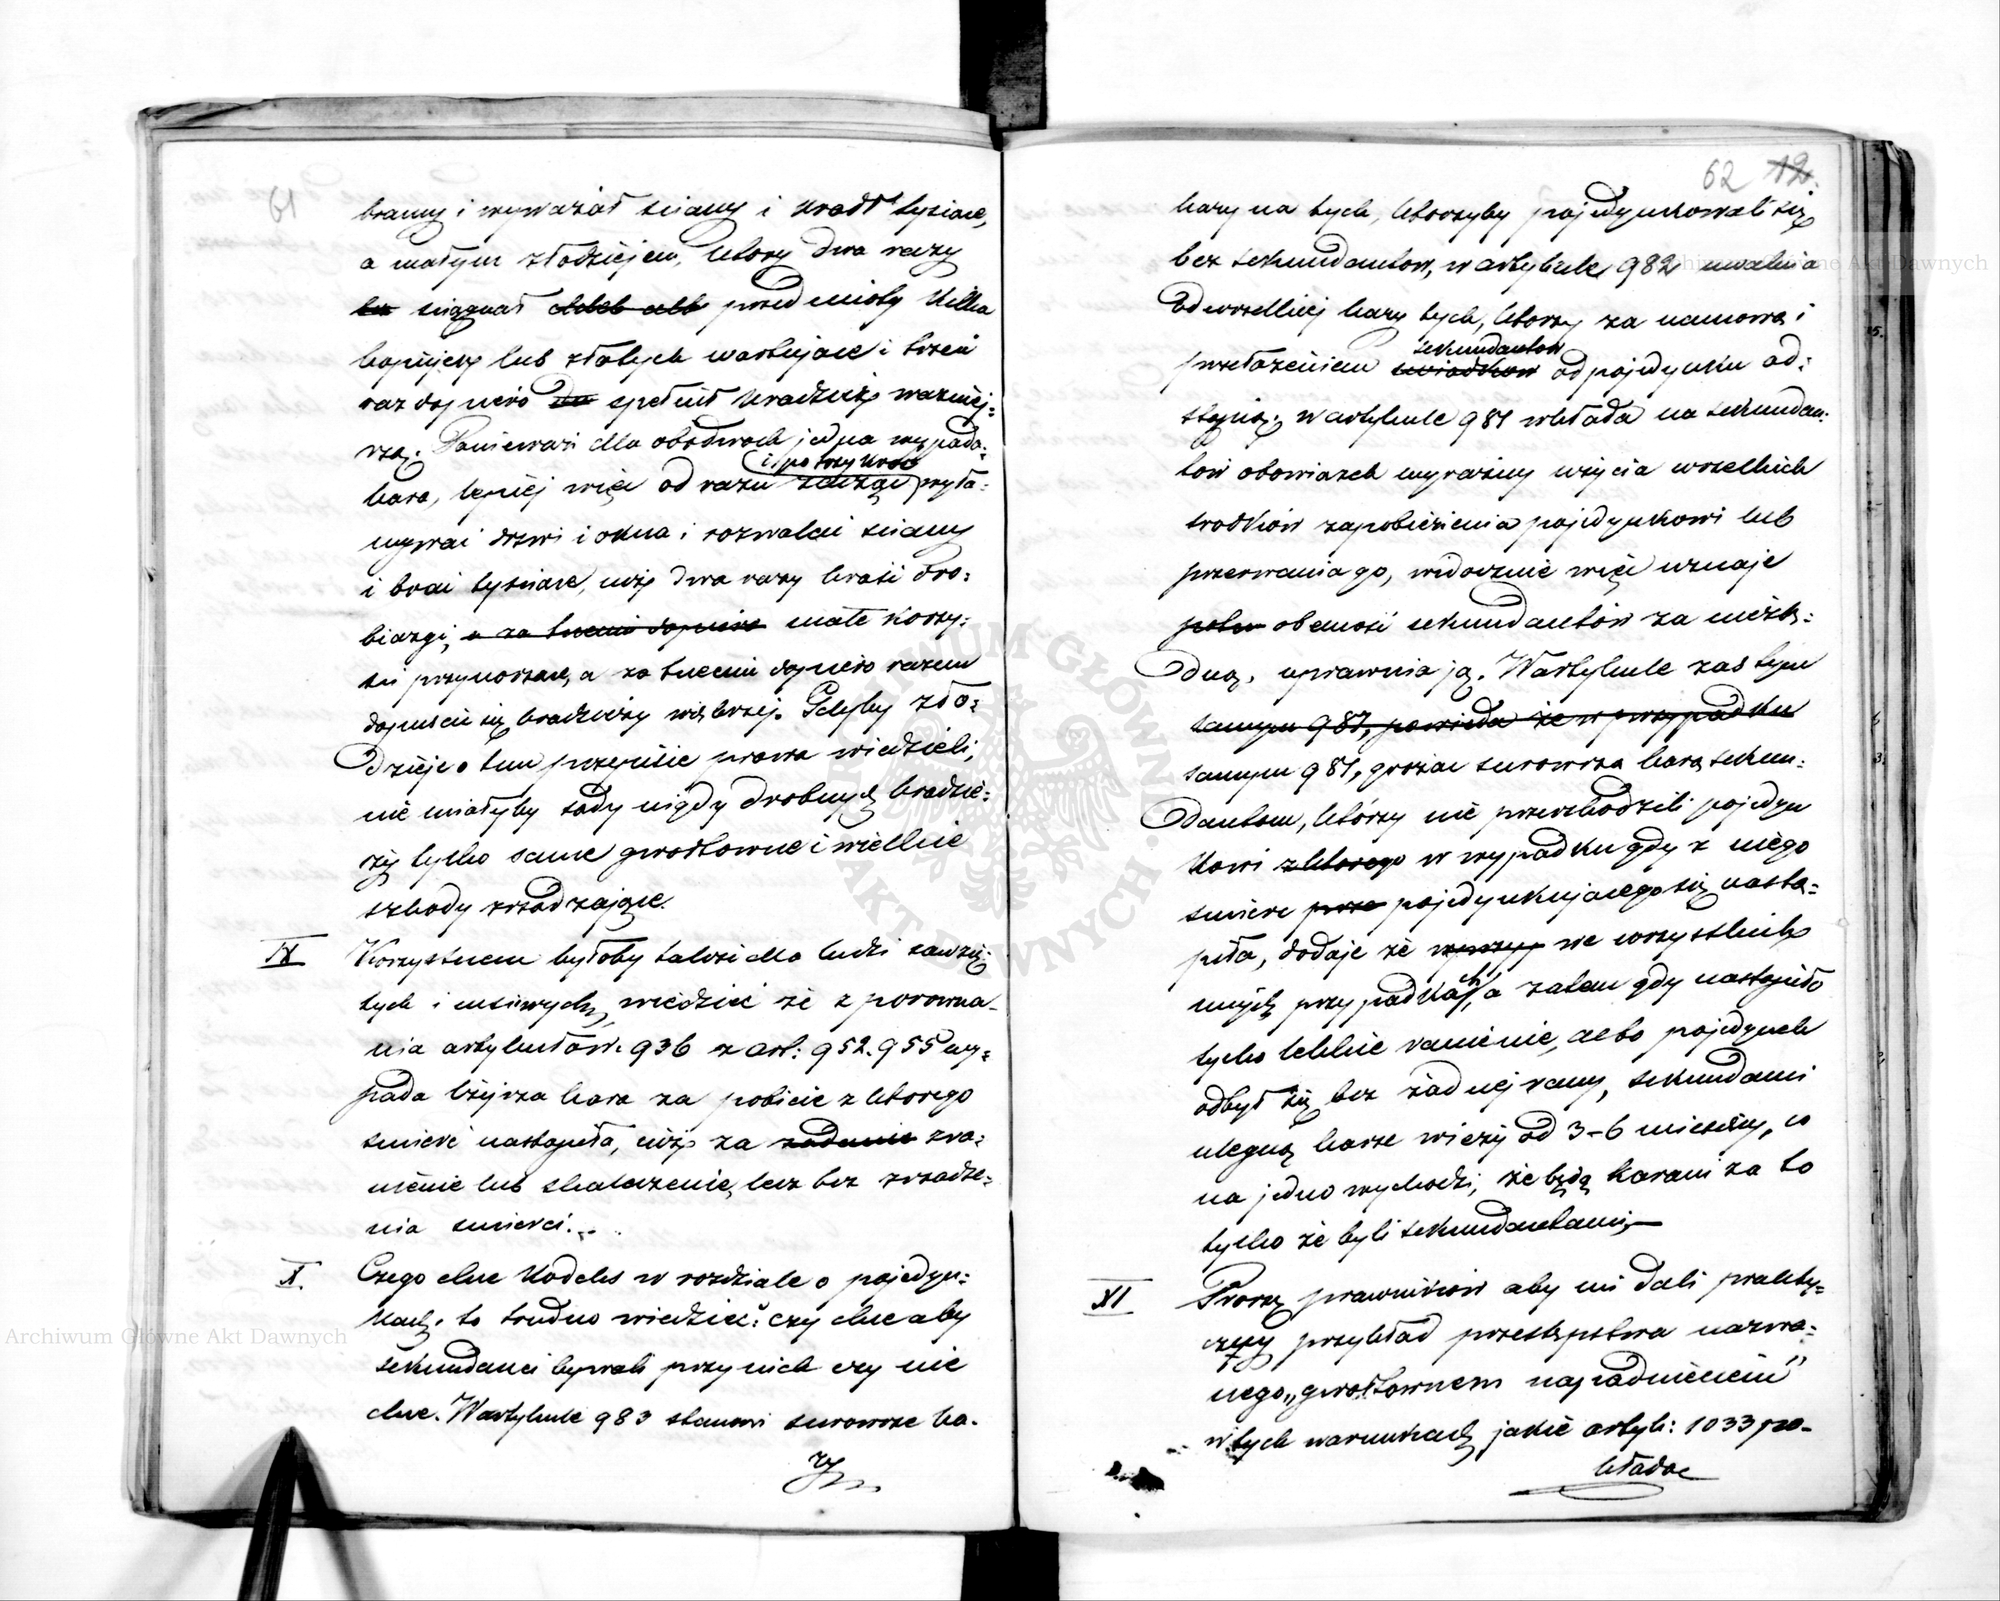 61
bramy i wyważał sciany i kradł tysiące,
a małym złodziejem, ktory dwa razy
sciągnął chleb albo przedmioty kilka
kopijek lub złotych wartujące i trzeci
raz dopiero spełnił kradzież ważniej-
szą. Ponieważ dla obódwóch jedna wypada
kara, lepiej więc od razu i po trzykroć wyła-
mywać drzwi i okna i rozwalać sciany
i brać tysiące, niż dwa razy kraść dro-
biazgi, a za trzecim dopiero małe korzy-
sci przynoszące, a za trzecim dopiero razem
dopuscić się kradzieży większej. Gdyby zło-
dzieje o tem przepisie prawa wiedzieli,
nie miałyby sądy nigdy drobnych kradzie-
ży tylko same gwałtowne i wielkie
szkody zrządzające.
IX Korzystnem byłoby także dla ludzi zawzię-
tych i mściwych, wiedzieć że z porowna-
nia artykułów 936 z art: 952. 955 wy-
pada lżejsza kara za pobicie z ktorego
smierć nastąpiła, niż za zadanie zra-
nienie lub skaleczenie, lecz bez zrządze-
nia smierci.
X. Czego chce Kodeks w rozdziale o pojedyn-
kach, to trudno wiedzieć: czy chce aby
sekundanci bywali przy nich czy nie
chce. W artykule 983 stanowi surowsze ka-
ry
62 12
kary na tych, ktorzyby pojedynkowali się
bez sekundantów, w artykule 982 uwalnia
od wszelkiej kary tych, ktorzy za namową i
sekundantów
przełożeniem swiadków od pojedynku od-
stąpią; w artykule 981 wkłada na sekundan-
tów obowiązek wyraźny użycia wszelkich
srodków zapobieżenia pojedynkowi lub
przerwania go, widocznie więc uznaje
obecność sekundantów za niezbę-
dną, uprawnia ją. W artykule zas tym
samym 981, powiada że w przypadku
samym 981, grożąc surowszą karą sekun-
dantom, ktorzy nie przeszkodzili pojedyn
kowi z ktorego w wypadku gdy z niego
smierc pojedynkującego się nastą-
piła, dodaje że we wszystkich
innych przypadkach, a zatem gdy nastąpiło
tylko lekkie ranienie, albo pojedynek
odbył się bez żadnej rany, sekundanci
ulegną karze wieży od 3-6 miesięcy, co
na jedno wychodzi, że będą karani za to
tylko że byli sekundantami,—
XI Proszę prawników aby mi dali prakty-
czny przykład przestępstwa nazwa-
nego „gwałtownem napadnieniem”
w tych warunkach jakie artyk: 1033 po-
kłada
Archiwum Główne Akt Dawnych
Archiwum Główne Akt Dawnych
ARCHIWUM GŁÓWNE AKT DAWNYCH